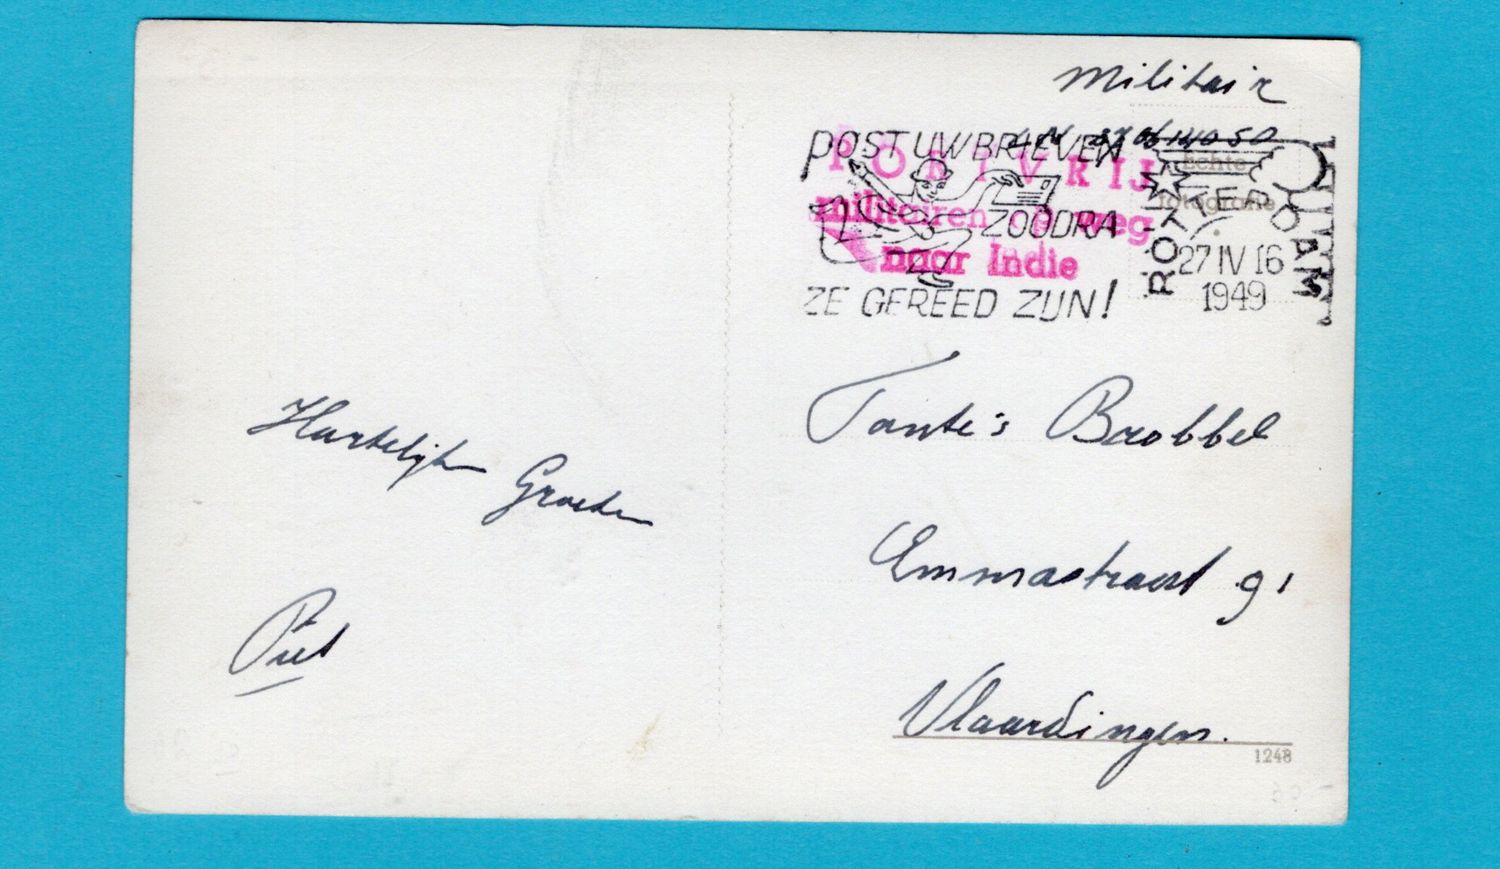 Militair
POST UW BRIEVEN
ZOODRA
ZE GEREED ZIJN!
PORTVRIJ
militairen op weg
naar Indie
Echte
fotografie
ROTTERDAM
27 IV 16
1949
Hartelijke
Groeten
Piet
Tante's
Emmastraat 91
Vlaardingen.
1248